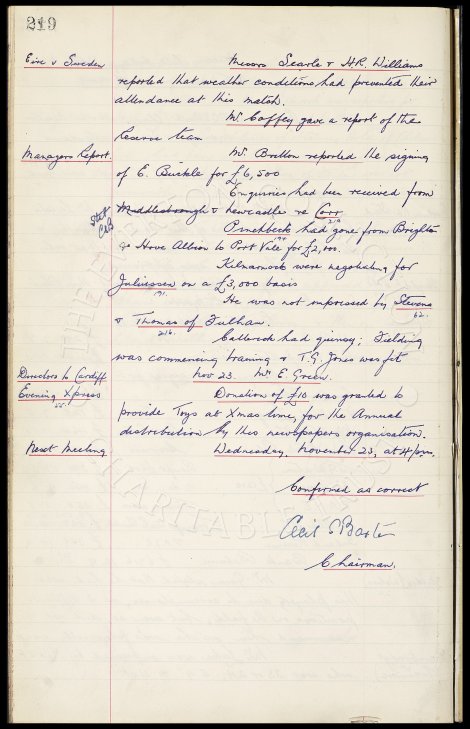 219
Eire v Sweden
Messrs Searle & H.R. Williams
reported that weather conditions had prevented their
attendance at this match.
Mr Coffey gave a report of the
Reserve team
Managers Report.
Mr. Britton reported the signing
of E. Buckle for £6,500
Enquiries had been received from
Middlesborough & Newcastle re Corr
219
Pinchbeck had gone from Brighton
& Hove Albion to Port Vale for £2,000.
Kilmarnock were negotiating for
Juliussen on a £3,000 basis
191.
He was not impressed by Stevens
62.
& Thomas of Fulham.
216.
Catterick had quinsy; Fielding
was commencing training & T.G. Jones was fit
Directors to Cardiff
Nov 23. Mr E Green.
Evening Xpress
Donation of £10 was granted to
provide Toys at Xmas time, for the Annual
distribution by this newspapers organisation.
Next Meeting
Wednesday, November 23, at 4 p.m.
Confirmed as correct
Cecil S Baxter
Chairman.